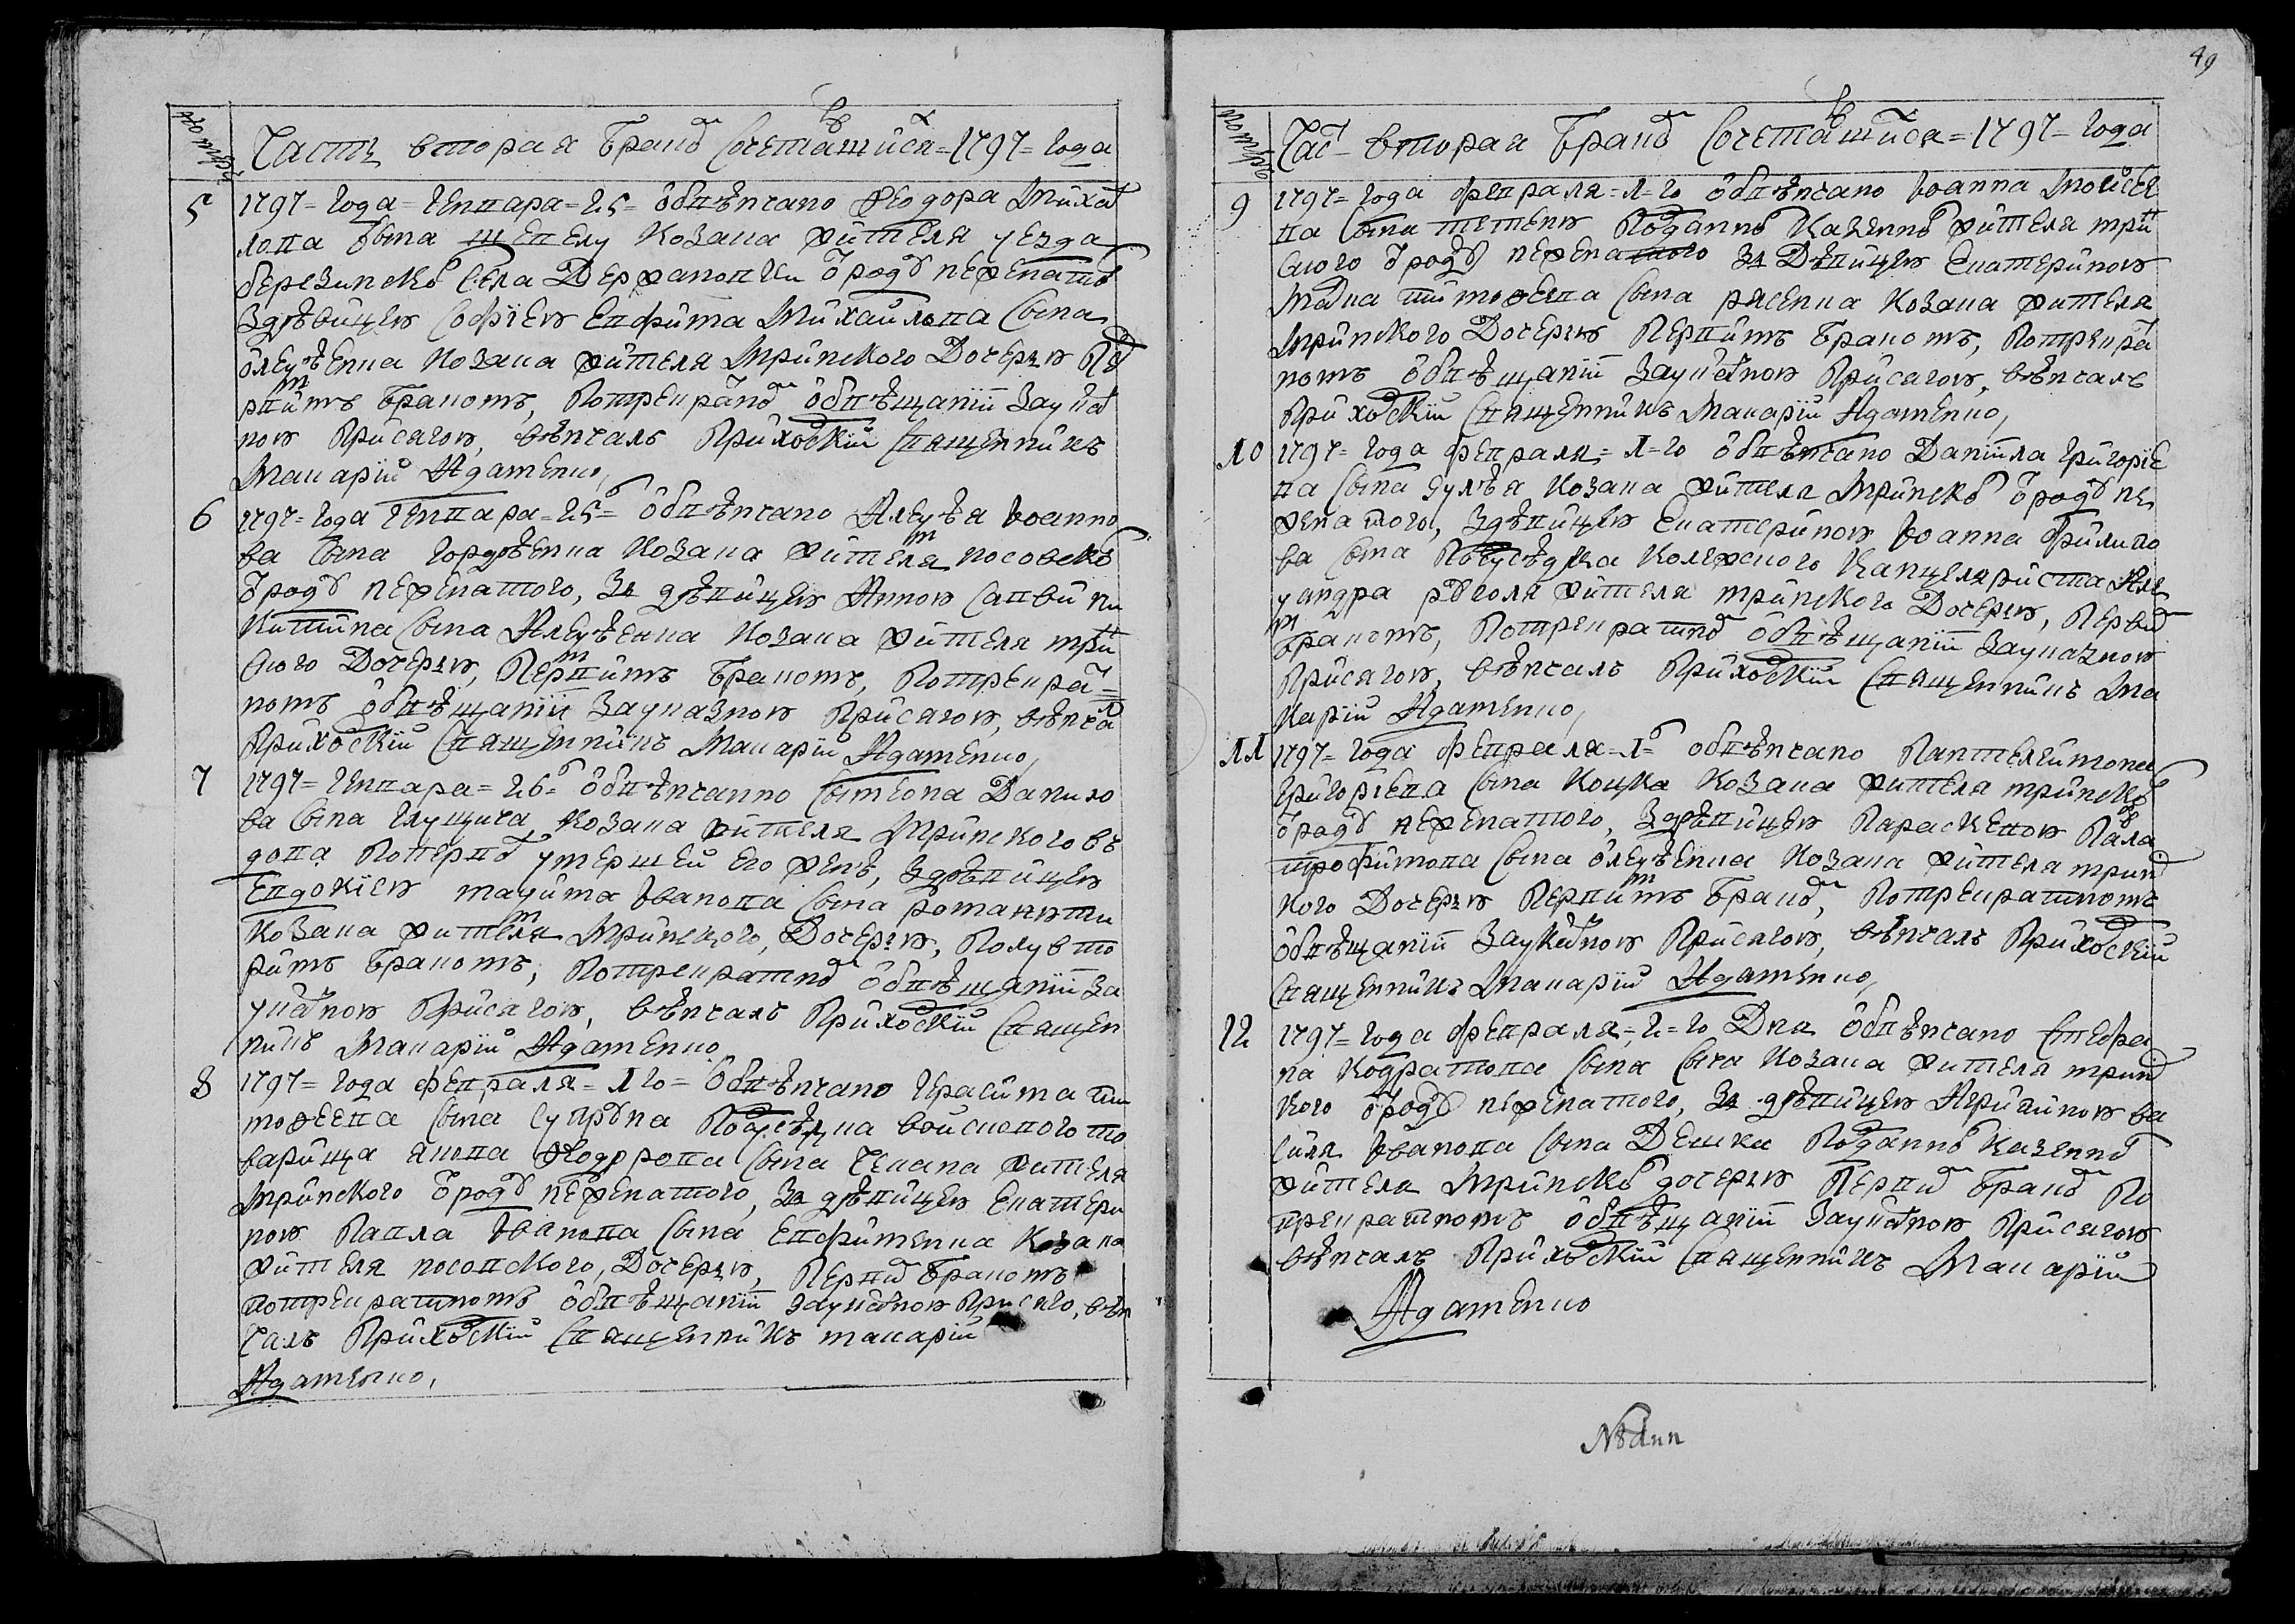 Часть вторая бракомъ сочетавшихся = 1797 = года
5 1797 = года = генвара = 25 = обвѣнчано Феодора Михай
лова сына козака жителя уезда
березинского села Держановки отрода неженатого
здѣвицею Софіею Евфима Михайлова сына
Олеѯѣенка козака жителя Мринского дочерью пе
рвимъ бракомъ, потрекратномъ обвѣщаніи зауказ
ною присягою, вѣнчалъ приходскій священникъ
Макарій Адаменко,
6 1797 = года генвара = 25 = го обвѣнчано Алеѯѣя Іоанно
ва сына Гордѣенка козака жителя носовского
отроду неженатого, за дѣвицею Анною Савви Ни
китина сына Алеѯѣенка козака жителя мрин
ского дочерью, первимъ бракомъ, потрекрат=
номъ обвѣщаніи зауказною присягою, вѣнчалъ
приходскій священникъ Макарій Адаменко,
7 1797 = генвара = 26 = го обвѣнчанно Сымеона Данило
ва сына козака жителя Мринского въ
дова поперво умершей его женѣ, здѣвицею
Евдокіею Маѯима Іванова сына
козака жителя Мринского, дочерью, полувто
римъ бракомъ, потрекратномъ обвѣщаніи за
указною присягою, вѣнчалъ приходскій священ
никъ Макарій Адаменко
8 1797 = года февраля = 1 го = обвѣнчано Герасима Ти
моѳеева сына войскового то
варища Якова Ѳедорова сына жителя
Мринского отроду неженатого, за дѣвицею Екатери
ною Павла Іванова сына Евфименка козака
жителя носовского, дочерью, первимъ бракомъ
потрекратномъ обвѣщаніи зауказною присяго, вѣн
чалъ приходскій священникъ Макарій
Адаменко,
49
Част = вторая бракомъ сочетавшихся = 1797 = года
9 1797 = года февраля = 1 = го обвѣнчано Іоанна Моисее
ва сына подданного казенного жителя мрин
ского отроду неженатого за дѣвицею Екатериною
Тимоѳеева сына козака жителя
Мринского дочерью первимъ бракомъ, потрекрат
номъ обвѣщаніи зауказною присягою, вѣнчалъ
приходскій священникъ Макарій Адаменко,
10 1797 = года февраля = 1 = го обвѣнчано Даніила Григоріе
ва сына козака жителя Мринского отроду не
женатого, здѣвицею Екатериною Іоанна Филипо
ва сына колежского канцеляриста Але
ѯандра жителя мринского дочерью, первимъ
бракомъ, потрекратномъ обвѣщаніи зауказною
присягою, вѣнчалъ приходскій священникъ Ма
карій Адаменко,
11 1797 = года февраля = 1 = го обвѣнчано Пантелеимона
Григоріева сына Коцка козака жителя мринского
отроду неженатого, здѣвицею Параскевою Павла
Трофимова сына Олеѯѣенка козака жителя мринс
кого дочерью первимъ бракомъ, потрекратномъ
обвѣщаніи зауказною присягою, вѣнчалъ приходскій
священникъ Макарій Адаменко,
12 1797 = года февраля = 2 = го дня обвѣнчано Стефа
на Кодратова сына Сыча козака жителя мринс
кого отроду неженатого, за дѣвицею Агрипиною Ва
силя Іванова сына Дешка подданного казенного
жителя Мринского дочерью первимъ бракомъ по
трекратномъ обвѣщаніи зауказною присягою
вѣнчалъ приходскій священникъ Макарій
Адаменко